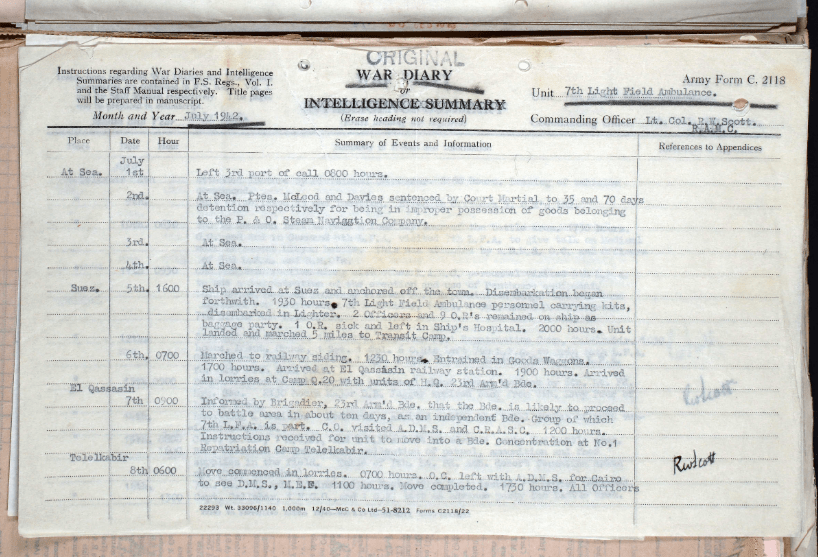 ORIGINAL
Instructions regarding War Diaries and Intelligence
Summaries are contained in F.S. Regs., Vol. I.
and the Staff Manual respectively. Title pages
will be prepared in manuscript.
WAR DIARY
or
INTELLIGENCE SUMMARY
(Erase heading not required)
Army Form C. 2118
Unit 7th Light Field Ambulance.
Month and Year July 1942.
Commanding Officer Lt. Col. R.W.Scott.
R.A.M.C.
Place Date Hour Summary of Events and Information References to Appendices
July
At Sea. 1st Left 3rd port of call 0800 hours.
2nd. At Sea. Ptes. McLeod and Davies sentenced by Court Martial to 35 and 70 days
detention respectively for being in improper possession of goods belonging
to the P. & O. Steam Navigation Company.
3rd. At Sea.
4th. At Sea.
Suez. 5th. 1600 Ship arrived at Suez and anchored off the town. Disembarkation began
forthwith. 1930 hours. 7th Light Field Ambulance personnel carrying kits,
disembarked in Lighter. 2 Officers and 9 O.R's remained on ship as
baggage party. 1 O.R. sick and left in Ship's Hospital. 2000 hours. Unit
landed and marched 5 miles to Transit Camp.
6th. 0700 Marched to railway siding. 1230 hours. Entrained in Goods Waggons.
1700 hours. Arrived at El Qassasin railway station. 1900 hours. Arrived
in lorries at Camp Q.20 with units of H.Q. 23rd Arm'd Bde.
El Qassasin
7th 0900 Informed by Brigadier, 23rd Arm'd Bde. that the Bde. is likely to proceed
to battle area in about ten days, as an independent Bde. Group of which
7th L.F.A. is part. C.O. visited A.D.M.S. and C.R.A.S.C. 1200 hours.
Instructions received for unit to move into a Bde. Concentration at No.1
Repatriation Camp Telelkabir.
Telelkabir
8th 0600 Move commenced in lorries. 0700 hours. O.C. left with A.D.M.S. for Cairo
to see D.M.S., M.E.F. 1100 hours. Move completed. 1730 hours. All Officers
RWScott
22293 Wt. 33096/1140 1,000m 12/40—McC & Co Ltd—51-8212 Forms C2118/22